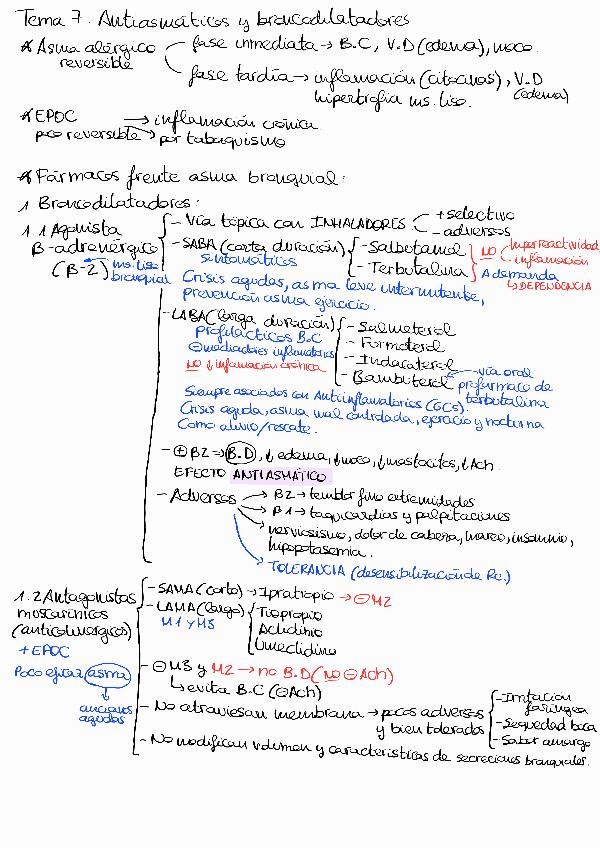 Tema 7. Antiasmáticos y broncodilatadores
* Asma alérgico reversible
fase inmediata → B.C, V.D (edema), moco.
fase tardía → inflamación (citocinas), V.D (edema)
hipertrofia ms. liso.
* EPOC → inflamación crónica
poco reversible → por tabaquismo
* Fármacos frente asma bronquial:
1 Broncodilatadores:
1.1 Agonista
B-adrenérgico
(B-2) ms. liso
bronquial
- Vía tópica con INHALADORES
+ selectivo
- adversos
- SABA (corta duración)
sintomáticos
- Salbutamol
- Terbutalina
NO hiperreactividad
inflamación
A demanda
↳ DEPENDENCIA
Crisis agudas, asma leve intermitente,
prevención asma ejercicio.
- LABA (larga duración)
profilácticos B.C
⊖ mediadores inflamatorios
NO ↓ inflamación crónica
- Salmeterol
- Formoterol
- Indacaterol
- Bambuterol ← vía oral
profármaco de
terbutalina
Siempre asociados con Antiinflamatorios (GCs).
Crisis aguda, asma mal controlada, ejercicio y nocturna
Como alivio/rescate.
- ⊕ B2 → B.D, ↓ edema, ↓ moco, ↓ mastocitos, ↓ Ach.
EFECTO ANTIASMÁTICO
- Adversos → B2 → temblor fino extremidades
→ B1 → taquicardias y palpitaciones
→ nerviosismo, dolor de cabeza, mareo, insomnio,
hipopotasemia.
→ TOLERANCIA (desensibilización de Rc.)
1.2 Antagonistas
muscarínicos
(anticolinérgicos)
+ EPOC
Poco eficaz asma
↓
ancianos
agudos
- SAMA (corto) → Ipratropio → ⊖ M2
- LAMA (largo)
M1 y M3
Tiopropio
Aclidinio
Umeclidino
- ⊖ M3 y M2 → no B.D (NO ⊖ Ach)
↳ evita B.C (⊖ Ach)
- No atraviesan membrana → pocos adversos
y bien tolerados
- Irritación
faríngea
- Sequedad boca
- Sabor amargo
- No modifican volumen y características de secreciones bronquiales.